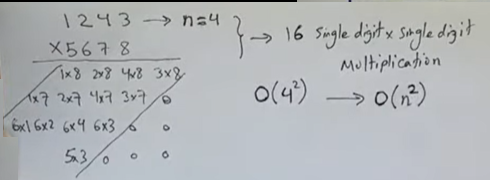 1 2 4 3 → n=4
X5 6 7 8
} → 16 Single digit x single digit
Multiplication
1x8 2x8 4x8 3x8
1x7 2x7 4x7 3x7 0
6x1 6x2 6x4 6x3 0 0
5x3 0 0 0
O(4²) → O(n²)